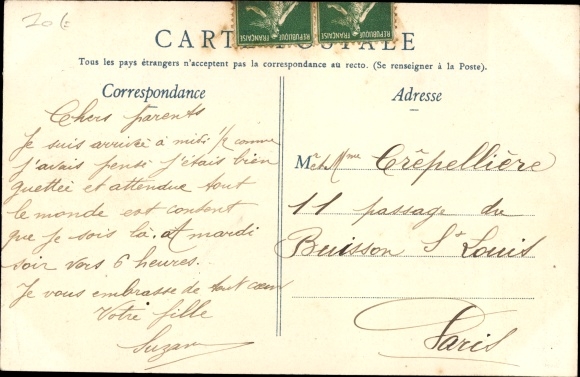 20 c
RÉPUBLIQUE FRANÇAISE
RÉPUBLIQUE FRANÇAISE
CARTE POSTALE
Tous les pays étrangers n'acceptent pas la correspondance au recto. (Se renseigner à la Poste).
Correspondance
Chers parents
Je suis arrivée à midi 1/2 comme
j'avais pensé j'étais bien
guettée et attendue tout
le monde est content
que je sois là. At mardi
soir vers 6 heures.
Je vous embrasse de tout cœur
Votre fille
Suzanne
Adresse
Mr et Mme Crêpellière
11 passage du
Buisson St Louis
Paris